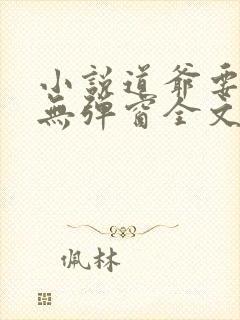 小說道爺要
無彈窗全文
佩林